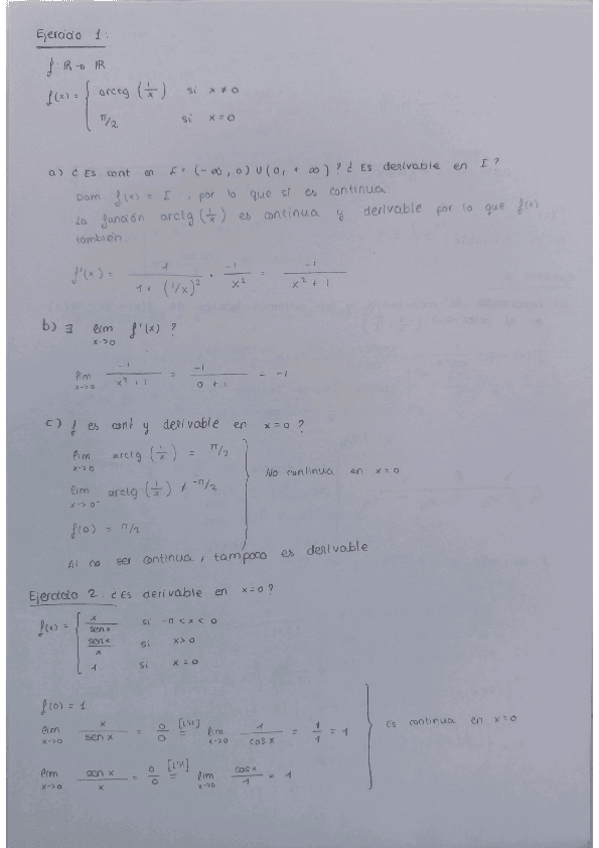 Ejercicio 1:
f: ℝ → ℝ
f(x) = { arctg (1/x) si x ≠ 0
π/2 si x = 0
a) ¿Es cont en I = (-∞, 0) ∪ (0, +∞)? ¿Es derivable en I?
Dom f(x) = I, por lo que sí es continua
La función arctg (1/x) es continua y derivable por lo que f(x)
también
f'(x) = 1/(1 + (1/x)²) · -1/x² = -1/(x² + 1)
b) ∃ lim x→0 f'(x) ?
lim x→0 -1/(x² + 1) = -1/(0 + 1) = -1
c) f es cont y derivable en x=0?
lim x→0 arctg (1/x) = π/2
lim x→0⁻ arctg (1/x) ≠ -π/2
f(0) = π/2
} No continua en x=0
Al no ser continua, tampoco es derivable
Ejercicio 2: ¿Es derivable en x=0?
f(x) = { x/sen x si -π < x < 0
sen x/x si x>0
1 si x = 0
f(0) = 1
lim x→0 x/sen x = 0/0 [L'H] = lim x→0 1/cos x = 1/1 = 1
lim x→0 sen x/x = 0/0 [L'H] = lim x→0 cos x/1 = 1
} Es continua en x=0